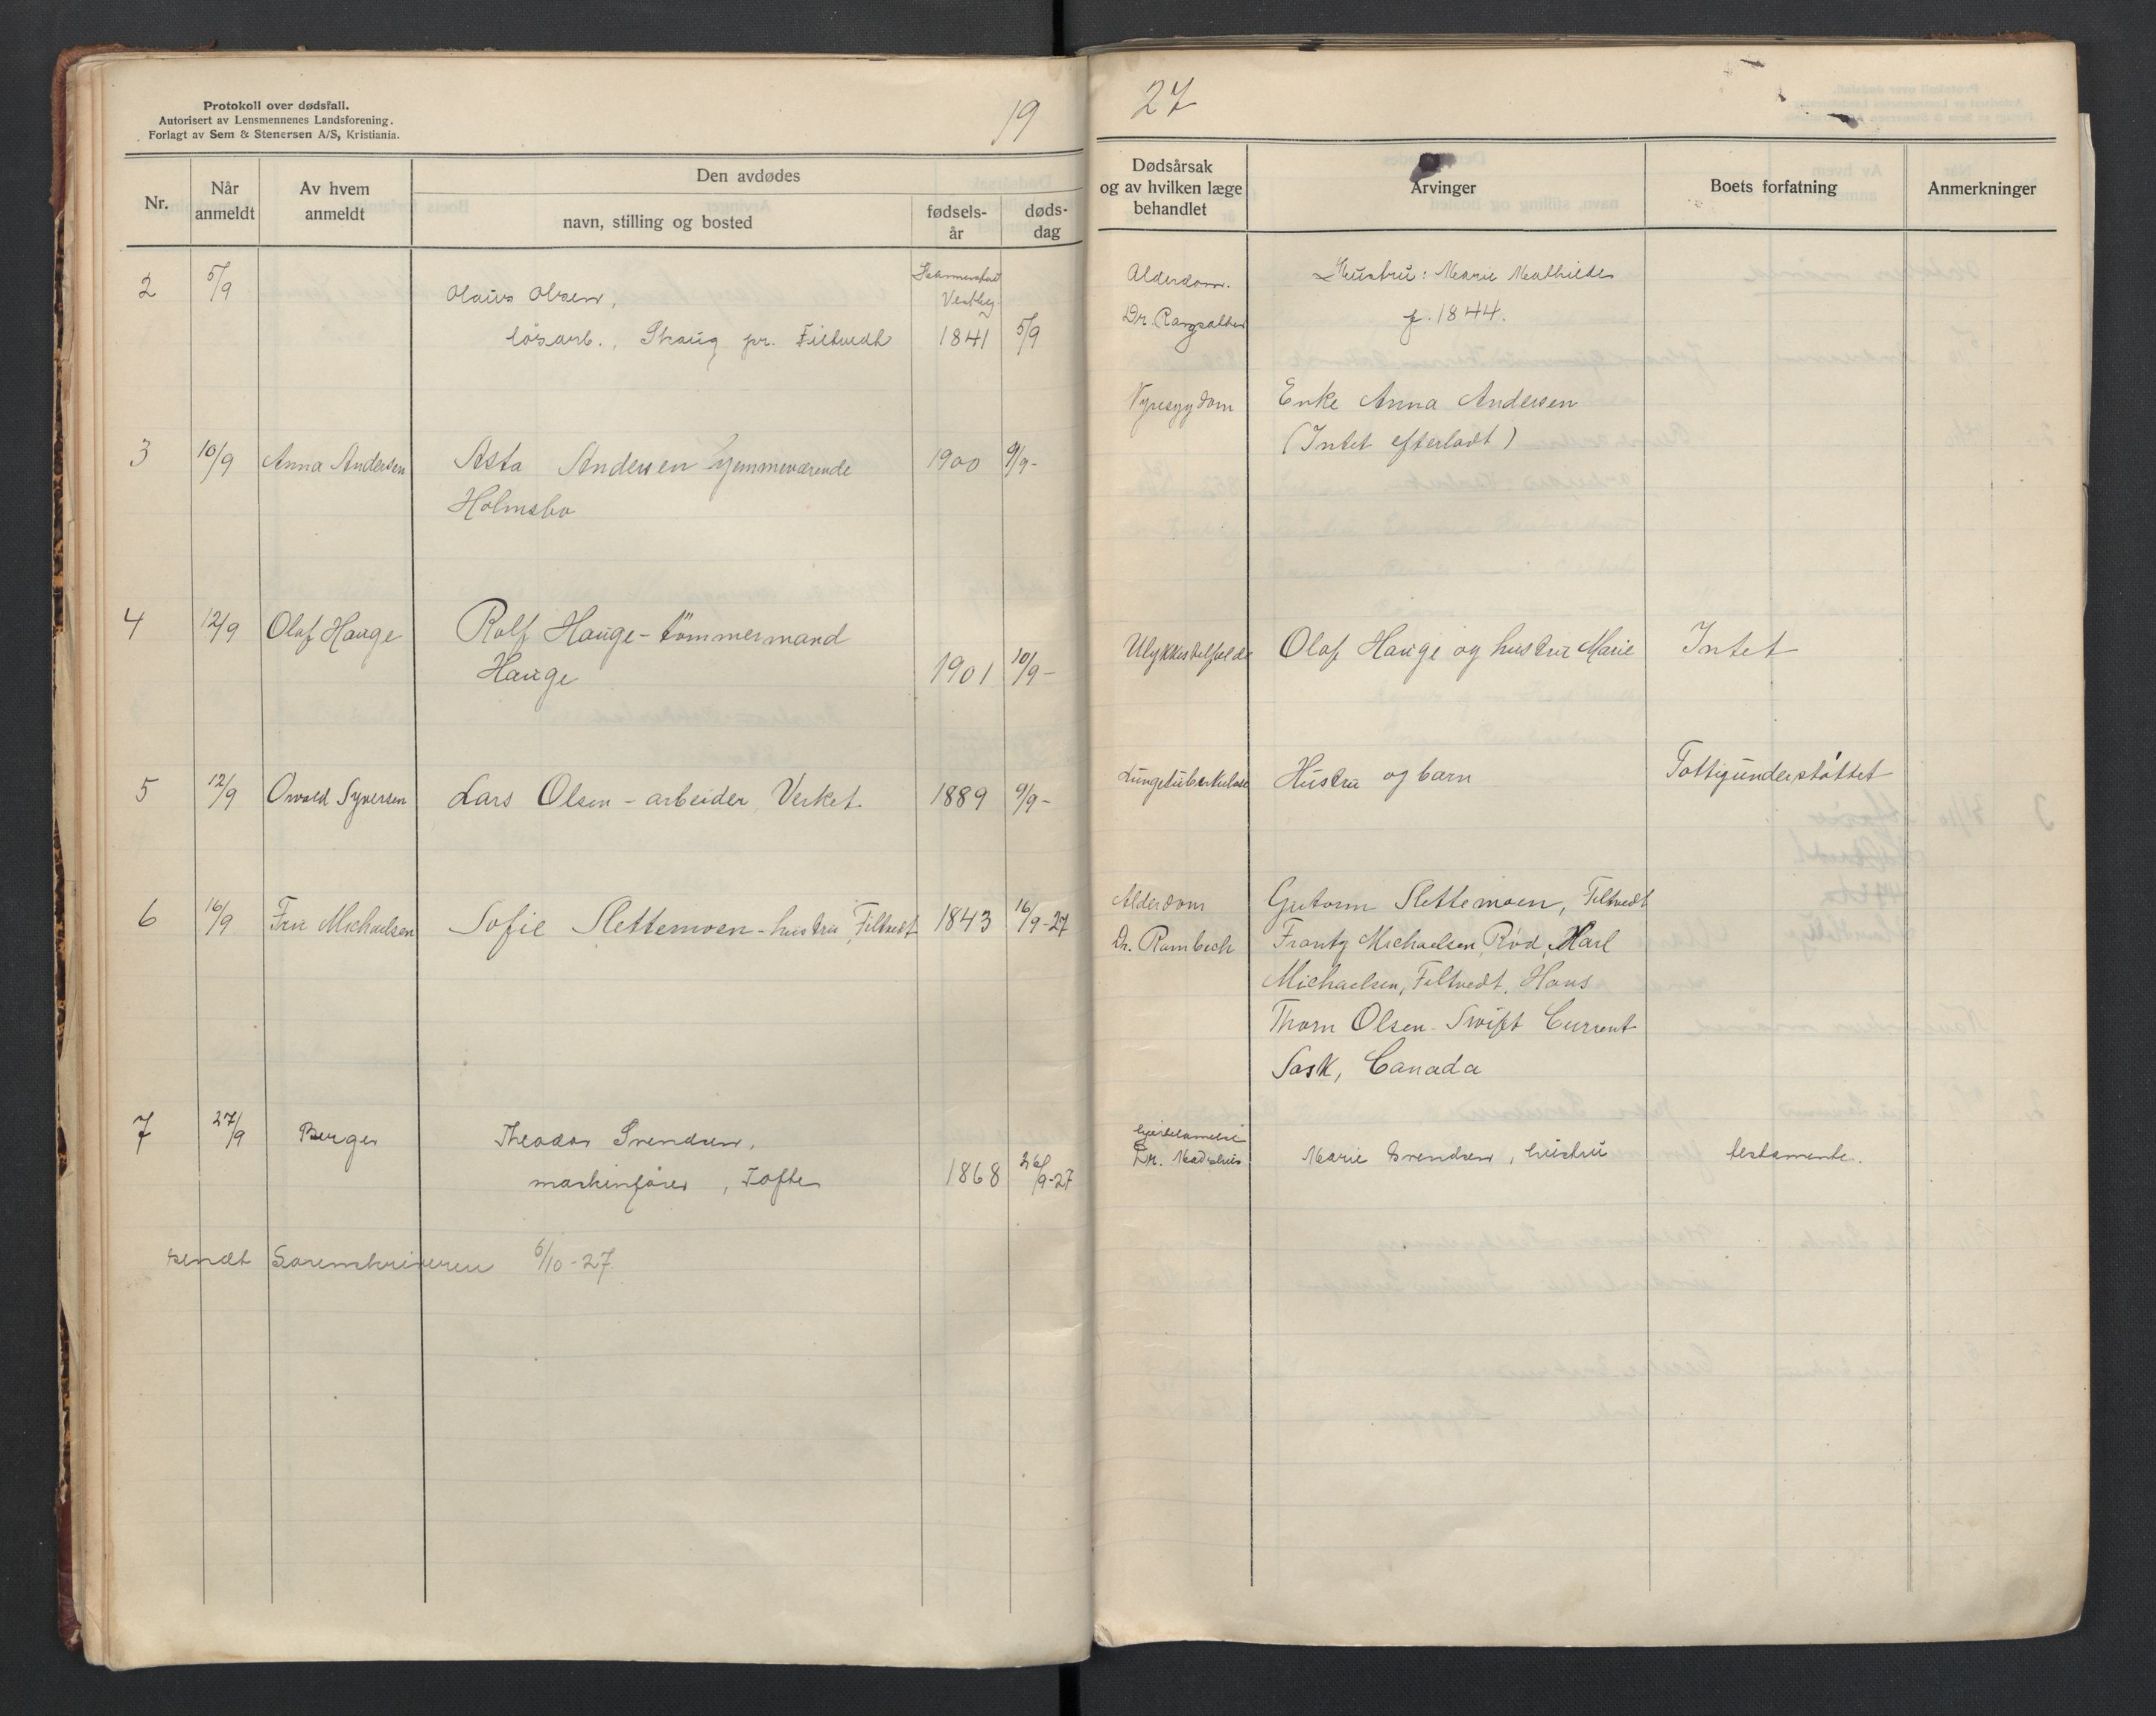 Protokoll over dødsfall.
Autorisert av Lensmennenes Landsforening.
Forlagt av Sem & Stenersen A/S, Kristiania.
19
27
Nr.
Når anmeldt
Av hvem anmeldt
Den avdødes
navn, stilling og bosted
fødsels-år
døds-dag
Dødsårsak
og av hvilken læge
behandlet
Arvinger
Boets forfatning
Anmerkninger
2 5/9 Olaus Olsen,
Vestby
løsarb., pr. Filtvedt 1841 5/9
Alderdom. Hustru: Marie Mathilde
Dr. f. 1844.
3 10/9 Anna Andersen Asta Andersen hjemmeværende 1900 9/9-
Holmsbo
Nyresygdom Enke Anna Andersen
(Intet efterladt)
4 12/9 Olaf Hauge Rolf Hauge - tömmermand
Hauge 1901 10/9-
Olaf Hauge og hustru Marie Intet
5 12/9 Osvald Syversen Lars Olsen - arbeider, Verket 1889 9/9-
Lungetuberkulose Hustru og barn Fattigunderstøttet
6 16/9 Fru Michaelsen Sofie Slettemoen - hustru, Filtvedt 1843 16/9-27
Alderdom Gutorm Slettemoen, Filtvedt
Dr. Rambech Frantz Michaelsen, Rød, Karl
Michaelsen, Filtvedt, Hans
Thorn Olsen - Swift Current
Sask, Canada
7 27/9 Berger Theodor Svendsen,
maskinfører, Tofte 1868 26/9-27
Hjertelammelse
Dr. Madshus Marie Svendsen, hustru testamente.
sendt Sorenskriveren 6/10-27